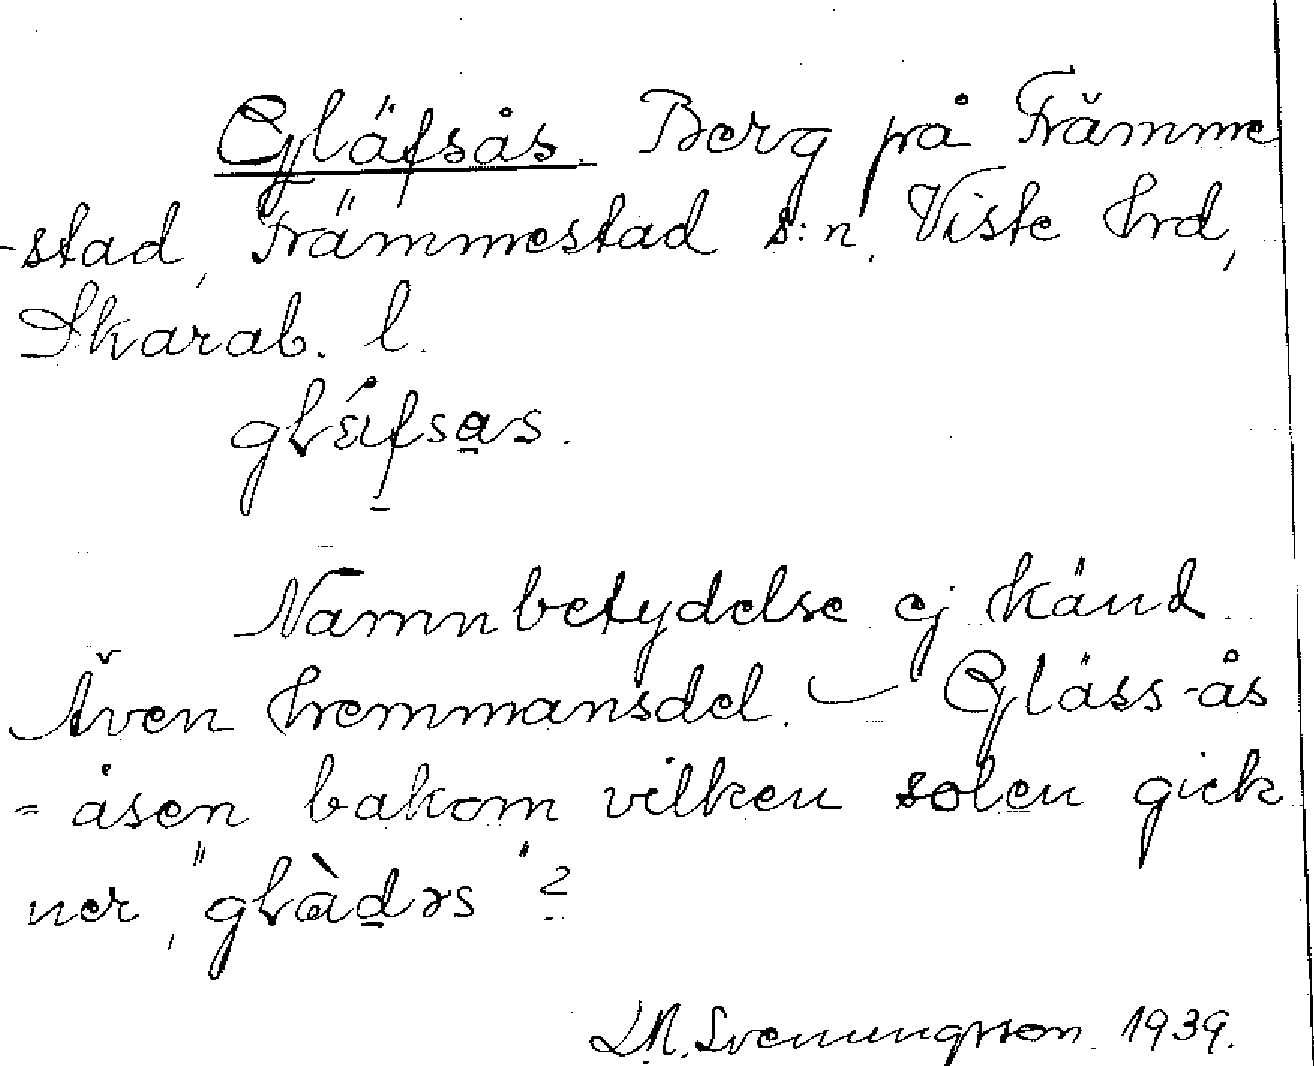 Gläfsås. Berg på Främme
-stad, Främmestad s:n, Viste hrd,
Skarab. l.
Namnbetydelse ej känd.
Även hemmansdel. – Gläss-ås
= åsen bakom vilken solen gick
ner, "glàdəs"?
L.N. Svenungsson 1939.